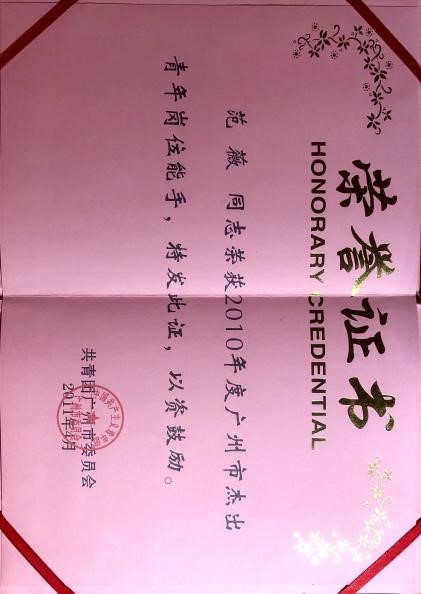 荣誉证书
HONORARY CREDENTIAL
范 薇 同志荣获2010年度广州市杰出
青年岗位能手，特发此证，以资鼓励。
中国共产主义青年团
广州市委员会
共青团广州市委员会
2011年4月